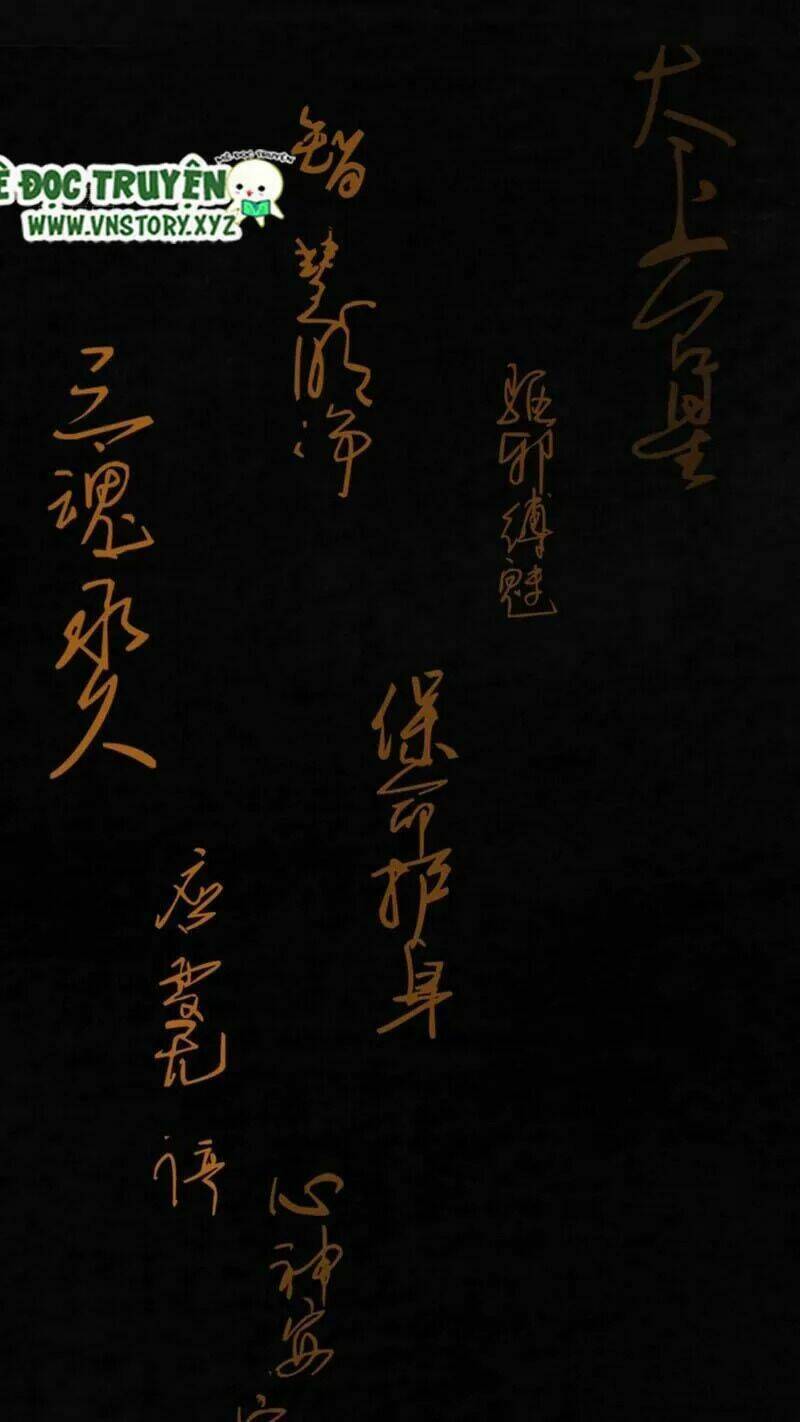 太上台星
应变无停
驱邪缚魅
保命护身
智慧明净
心神安宁
三魂永久
Ề ĐỌC TRUYỆN
MÊ ĐỌC TRUYỆN
WWW.VNSTORY.XYZ